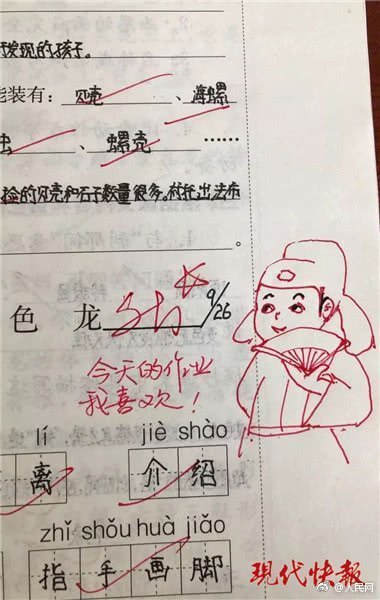 发现的孩子。
能装有： 贝壳 、海螺
虫 、 螺壳 ……
捡的贝壳和石子数量很多。衬托出法布
。
色 龙 好 9/26
今天的作业
我喜欢！
lí jiè shào
离 介 绍
zhǐ shǒu huà jiǎo
指 手 画 脚
现代快报
@人民网